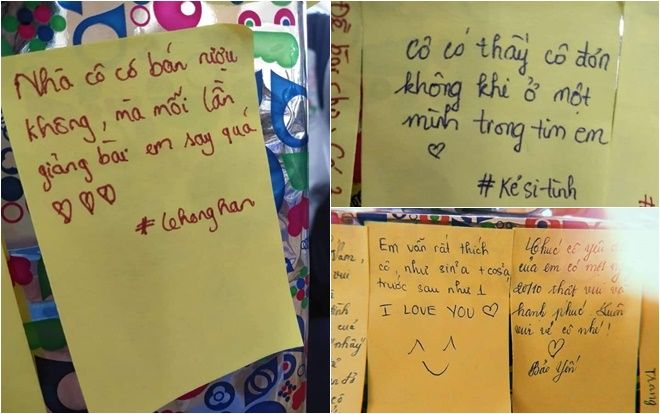 Nhà cô có bán rượu
không, mà mỗi lần
giảng bài em say quá
#lehonghan
Cô có thấy cô đơn
không khi ở một
mình trong tim em
#Kẻ si-tình
Em vẫn rất thích
cô, như sin²a + cos²a
trước sau như 1
I LOVE YOU
Chúc cô yêu
của em có một
20/10 thật vui và
hạnh phúc. Luôn
vui vẻ cô nhé!
Bảo Yến
Trang